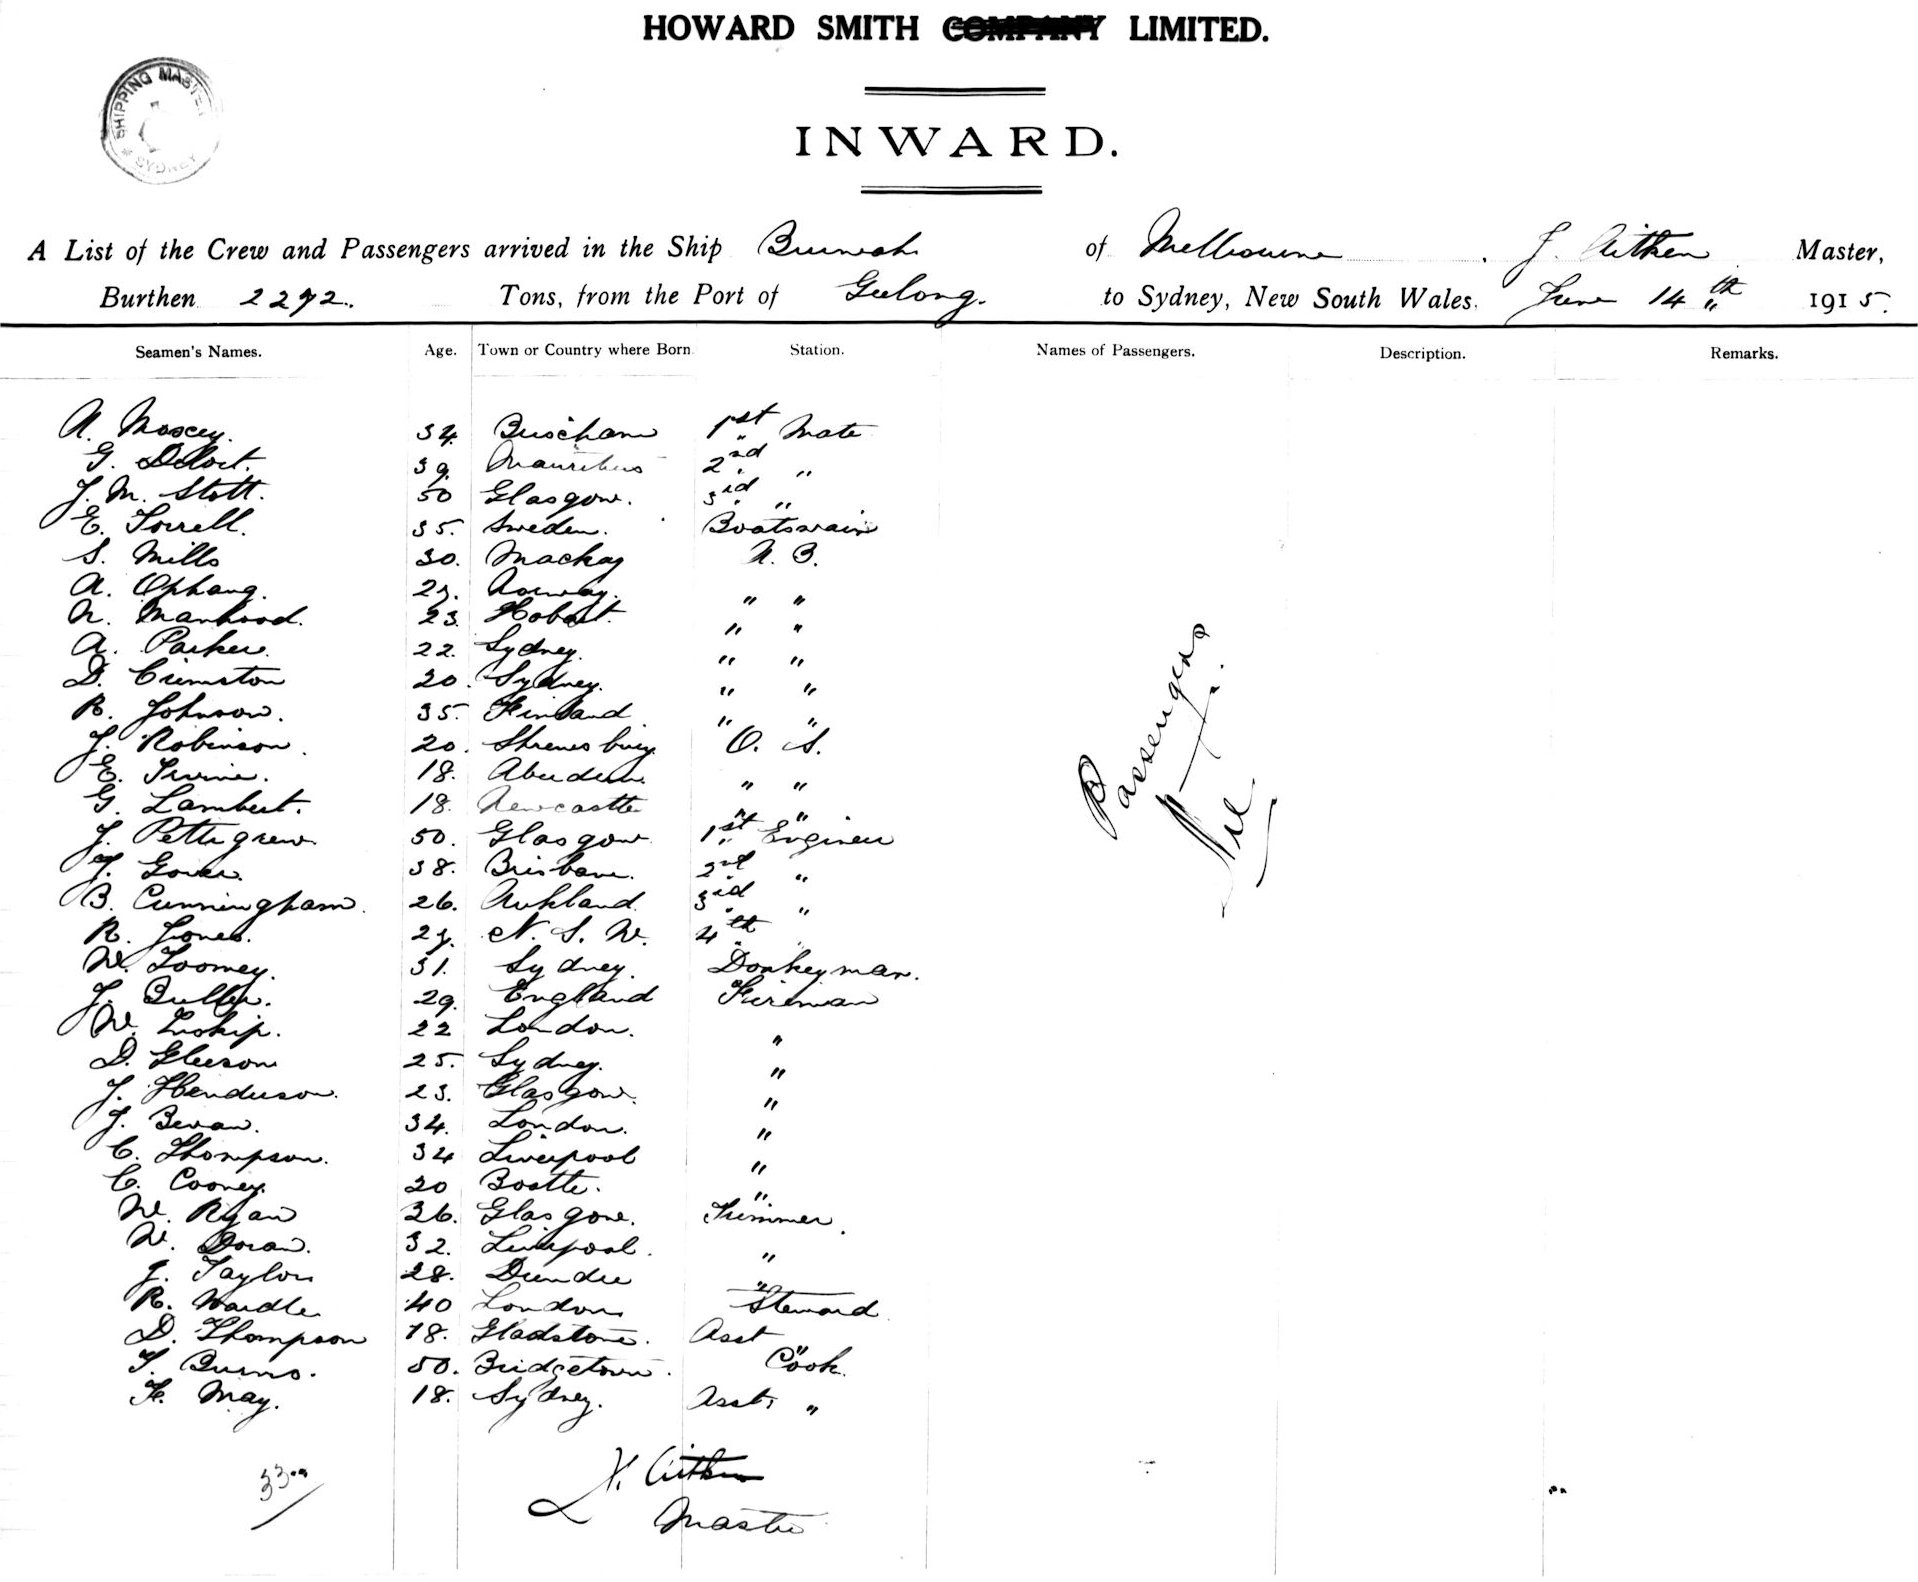 HOWARD SMITH COMPANY LIMITED.
SHIPPING MASTER SYDNEY
INWARD.
A List of the Crew and Passengers arrived in the Ship Burwah of Melbourne J. Aitken Master,
Burthen 2292. Tons, from the Port of Geelong. to Sydney, New South Wales. June 14th 1915.
Seamen's Names. Age. Town or Country where Born Station. Names of Passengers. Description. Remarks.
A. Moscey. 34. 1st Mate
G. 39. Mauritius 2nd "
J. M. Stott. 50 Glasgow. 3rd "
E. Torrell. 35. Sweden. Boatswain
S. Mills 30. Mackay A. B.
A. Ophaug. 27. Norway. " "
N. Manhood. 23. Hobart. " "
A. Parker. 22. Sydney. " "
D. Crimston 20. Sydney. " "
R. Johnson. 35. Finland. " "
J. Robinson. 20. Shrewsbury O. S.
E. Irvine. 18. Aberdeen. " "
G. Lambert. 18. Newcastle " "
J. Pettigrew. 50. Glasgow 1st Engineer
T. Gower. 38. Brisbane. 2nd "
B. Cunningham. 26. Aukland. 3rd "
R. Jones. 27. N. S. W. 4th "
W. Toomey. 31. Sydney. Donkeyman.
J. 29. England Fireman
W. Inskip. 22 London. "
D. Gleeson 25. Sydney. "
J. Henderson. 23. Glasgow. "
J. Bevan. 34. London. "
C. Thompson. 34 Liverpool "
C. Cooney. 20 Bootle. "
W. Ryan 36. Glasgow. Trimmer.
W. Doran. 32. Liverpool. "
J. Taylor 28. Dundee "
R. Wardle 40 London Steward
D. Thompson 18. Gladstone. Asst "
T. Burns. 50. Bridgetown. Cook.
F. May. 18. Sydney. Asst. "
Passengers
Nil
33
J. Aitken
Master